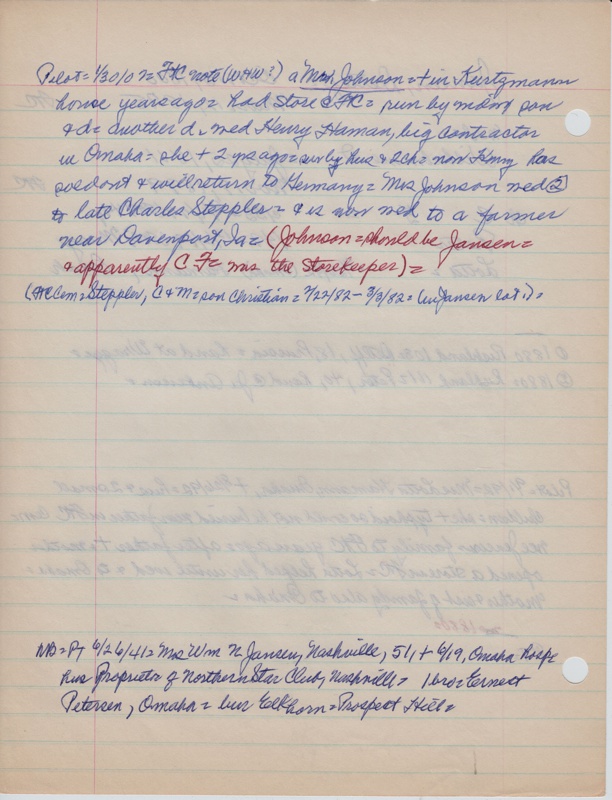 Pilot = 1/30/02 = FtC note (WHW?) a "Mrs Johnson = + in Kurtzmann
house years ago = had store @ FtC = run by mdm & son
& d = another d. wed Henry Haman, big contractor
in Omaha = she + 2 yrs ago = surv by hus & 2ch = now Henry has
soldout & will return to Germany = Mrs Johnson wed ②
to late Charles Steppler = & is now wed to a farmer
near Davenport, Ia = (Johnson = should be Jansen =
& apparently C F = was the Storekeeper) =
(FtCCem = Steppler, C & M = son Christian = 7/22/82 - 3/3/82 = (in Jansen lot.) =
NB = PT 6/26/41 = Mrs Wm N Jansen, Nashville, 51, + 6/19, Omaha hosp =
hus Proprietor of Northern Star Club, Nashville = 1 bro = Ernest
Petersen, Omaha = bur Elkhorn = Prospect Hill =